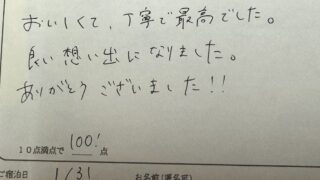 おいしくて、丁寧で最高でした。
良い想い出になりました。
ありがとうございました!!
10点満点で 100! 点
ご宿泊日 1/31 お名前(匿名可)